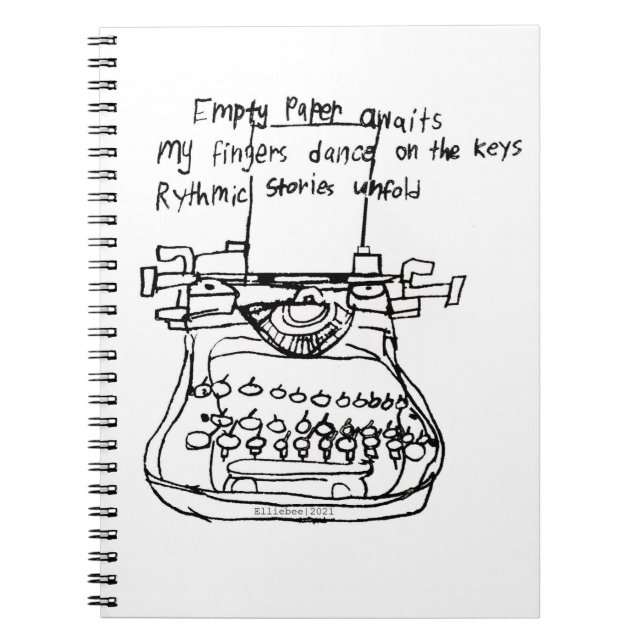 Empty Paper awaits
My fingers dance on the keys
Rythmic Stories unfold
Elliebee|2021